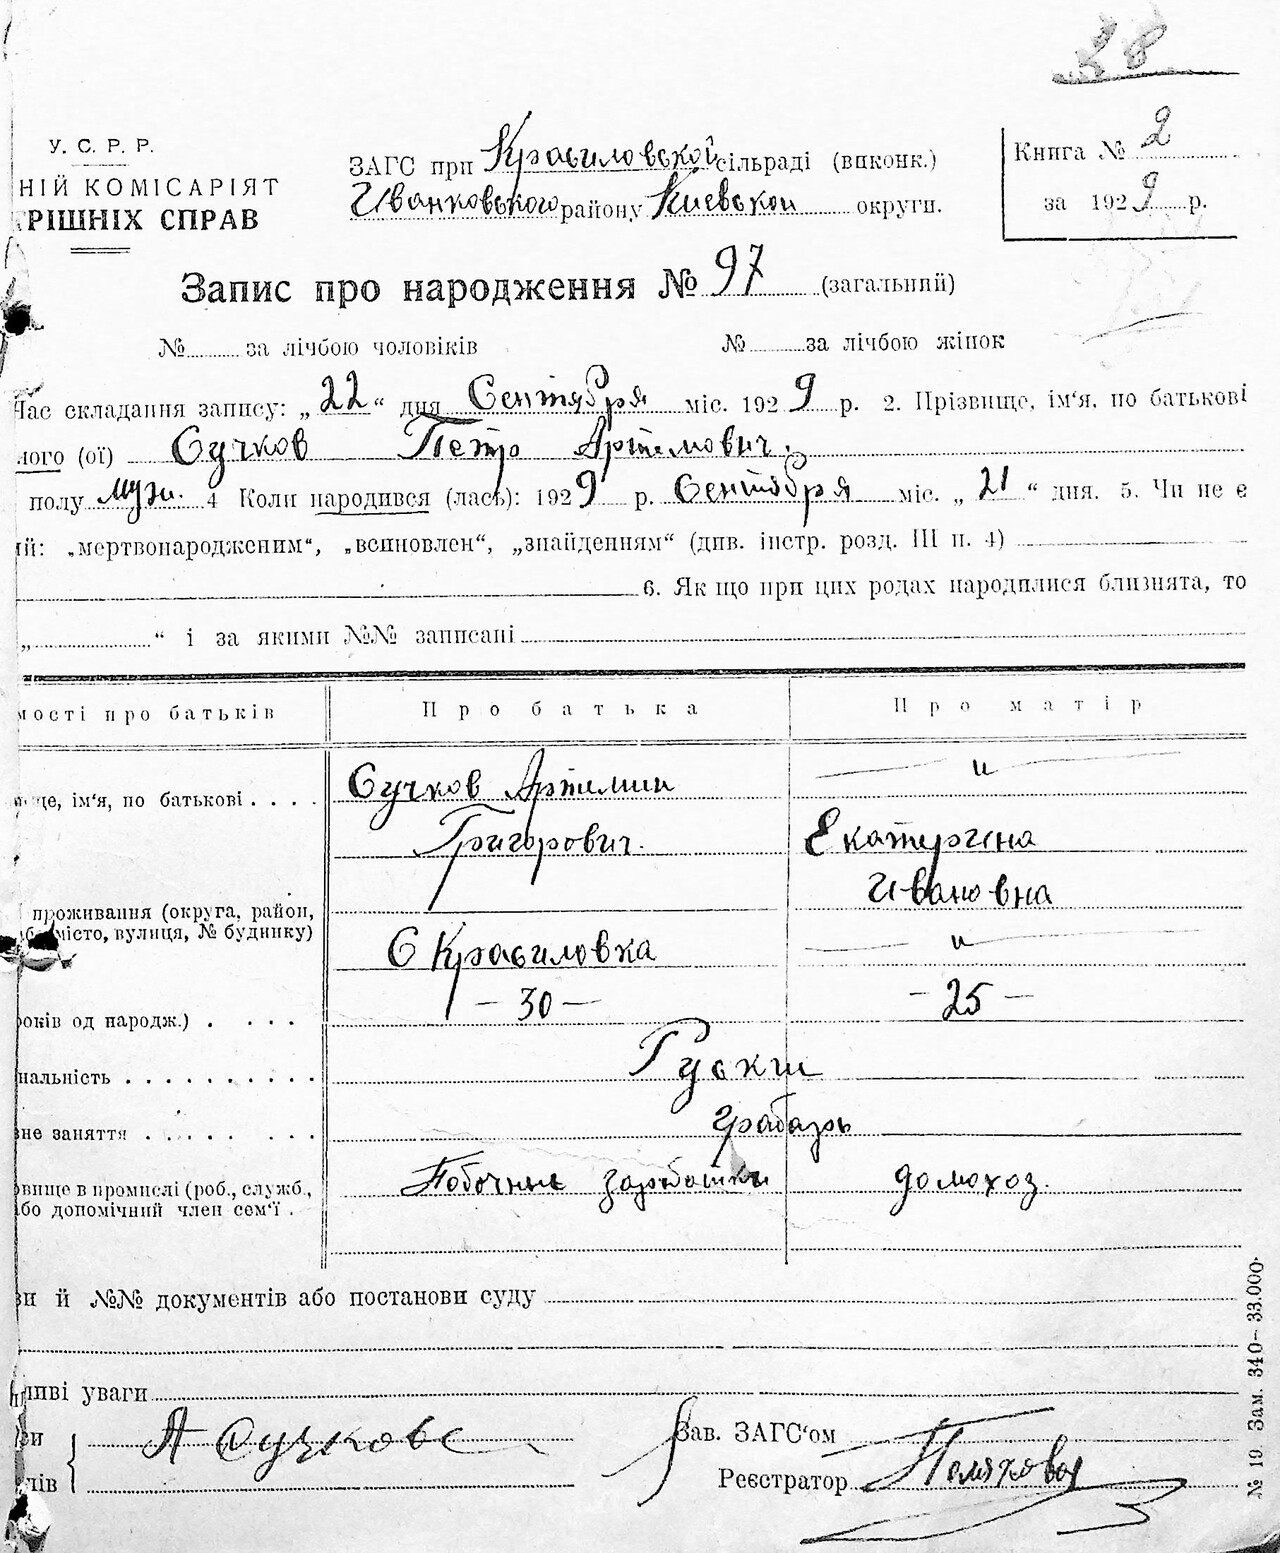 58
У. С. Р. Р.
НІЙ КОМІСАРІЯТ
РІШНІХ СПРАВ
ЗАГС при Красиловской сільраді (виконк.)
Иванковського району Киевской округи.
Книга № 2
за 1929 р.
Запис про народження № 97 (загальний)
№ за лічбою чоловіків № за лічбою жінок
Час складання запису: „ 22 “ дня Сентября міс. 1929 р. 2. Прізвище, ім'я, по батькові
ного (ої) Сучков Петр Артемович.
полу муж. 4 Коли народився (лась): 1929 р. Сентября міс. „ 21 “ дня. 5. Чи не є
ий: „мертвонародженим“, „всиновлен“, „знайденням“ (див. інстр. розд. III п. 4)
6. Як що при цих родах народилися близнята, то
„ “ і за якими №№ записані
мості про батьків Про батька Про матір
ще, ім'я, по батькові . . . . Сучков Артемии и
Григорович. Екатерина
Ивановна
проживання (округа, район,
місто, вулиця, № будинку)
С Красиловка и
років од народж.) . . . . – 30 – – 25 –
нальність . . . . . . . . . . Руский
не заняття . . . . . . . . грабарь
вище в промислі (роб., служб., Побочные заработки домохоз.
бо допомічний член сем'ї .
зи й №№ документів або постанови суду
ливі уваги
ри А Сучкове Зав. ЗАГС'ом
лів Реєстратор Полякова
№ 19. Зам. 340– 33.000·